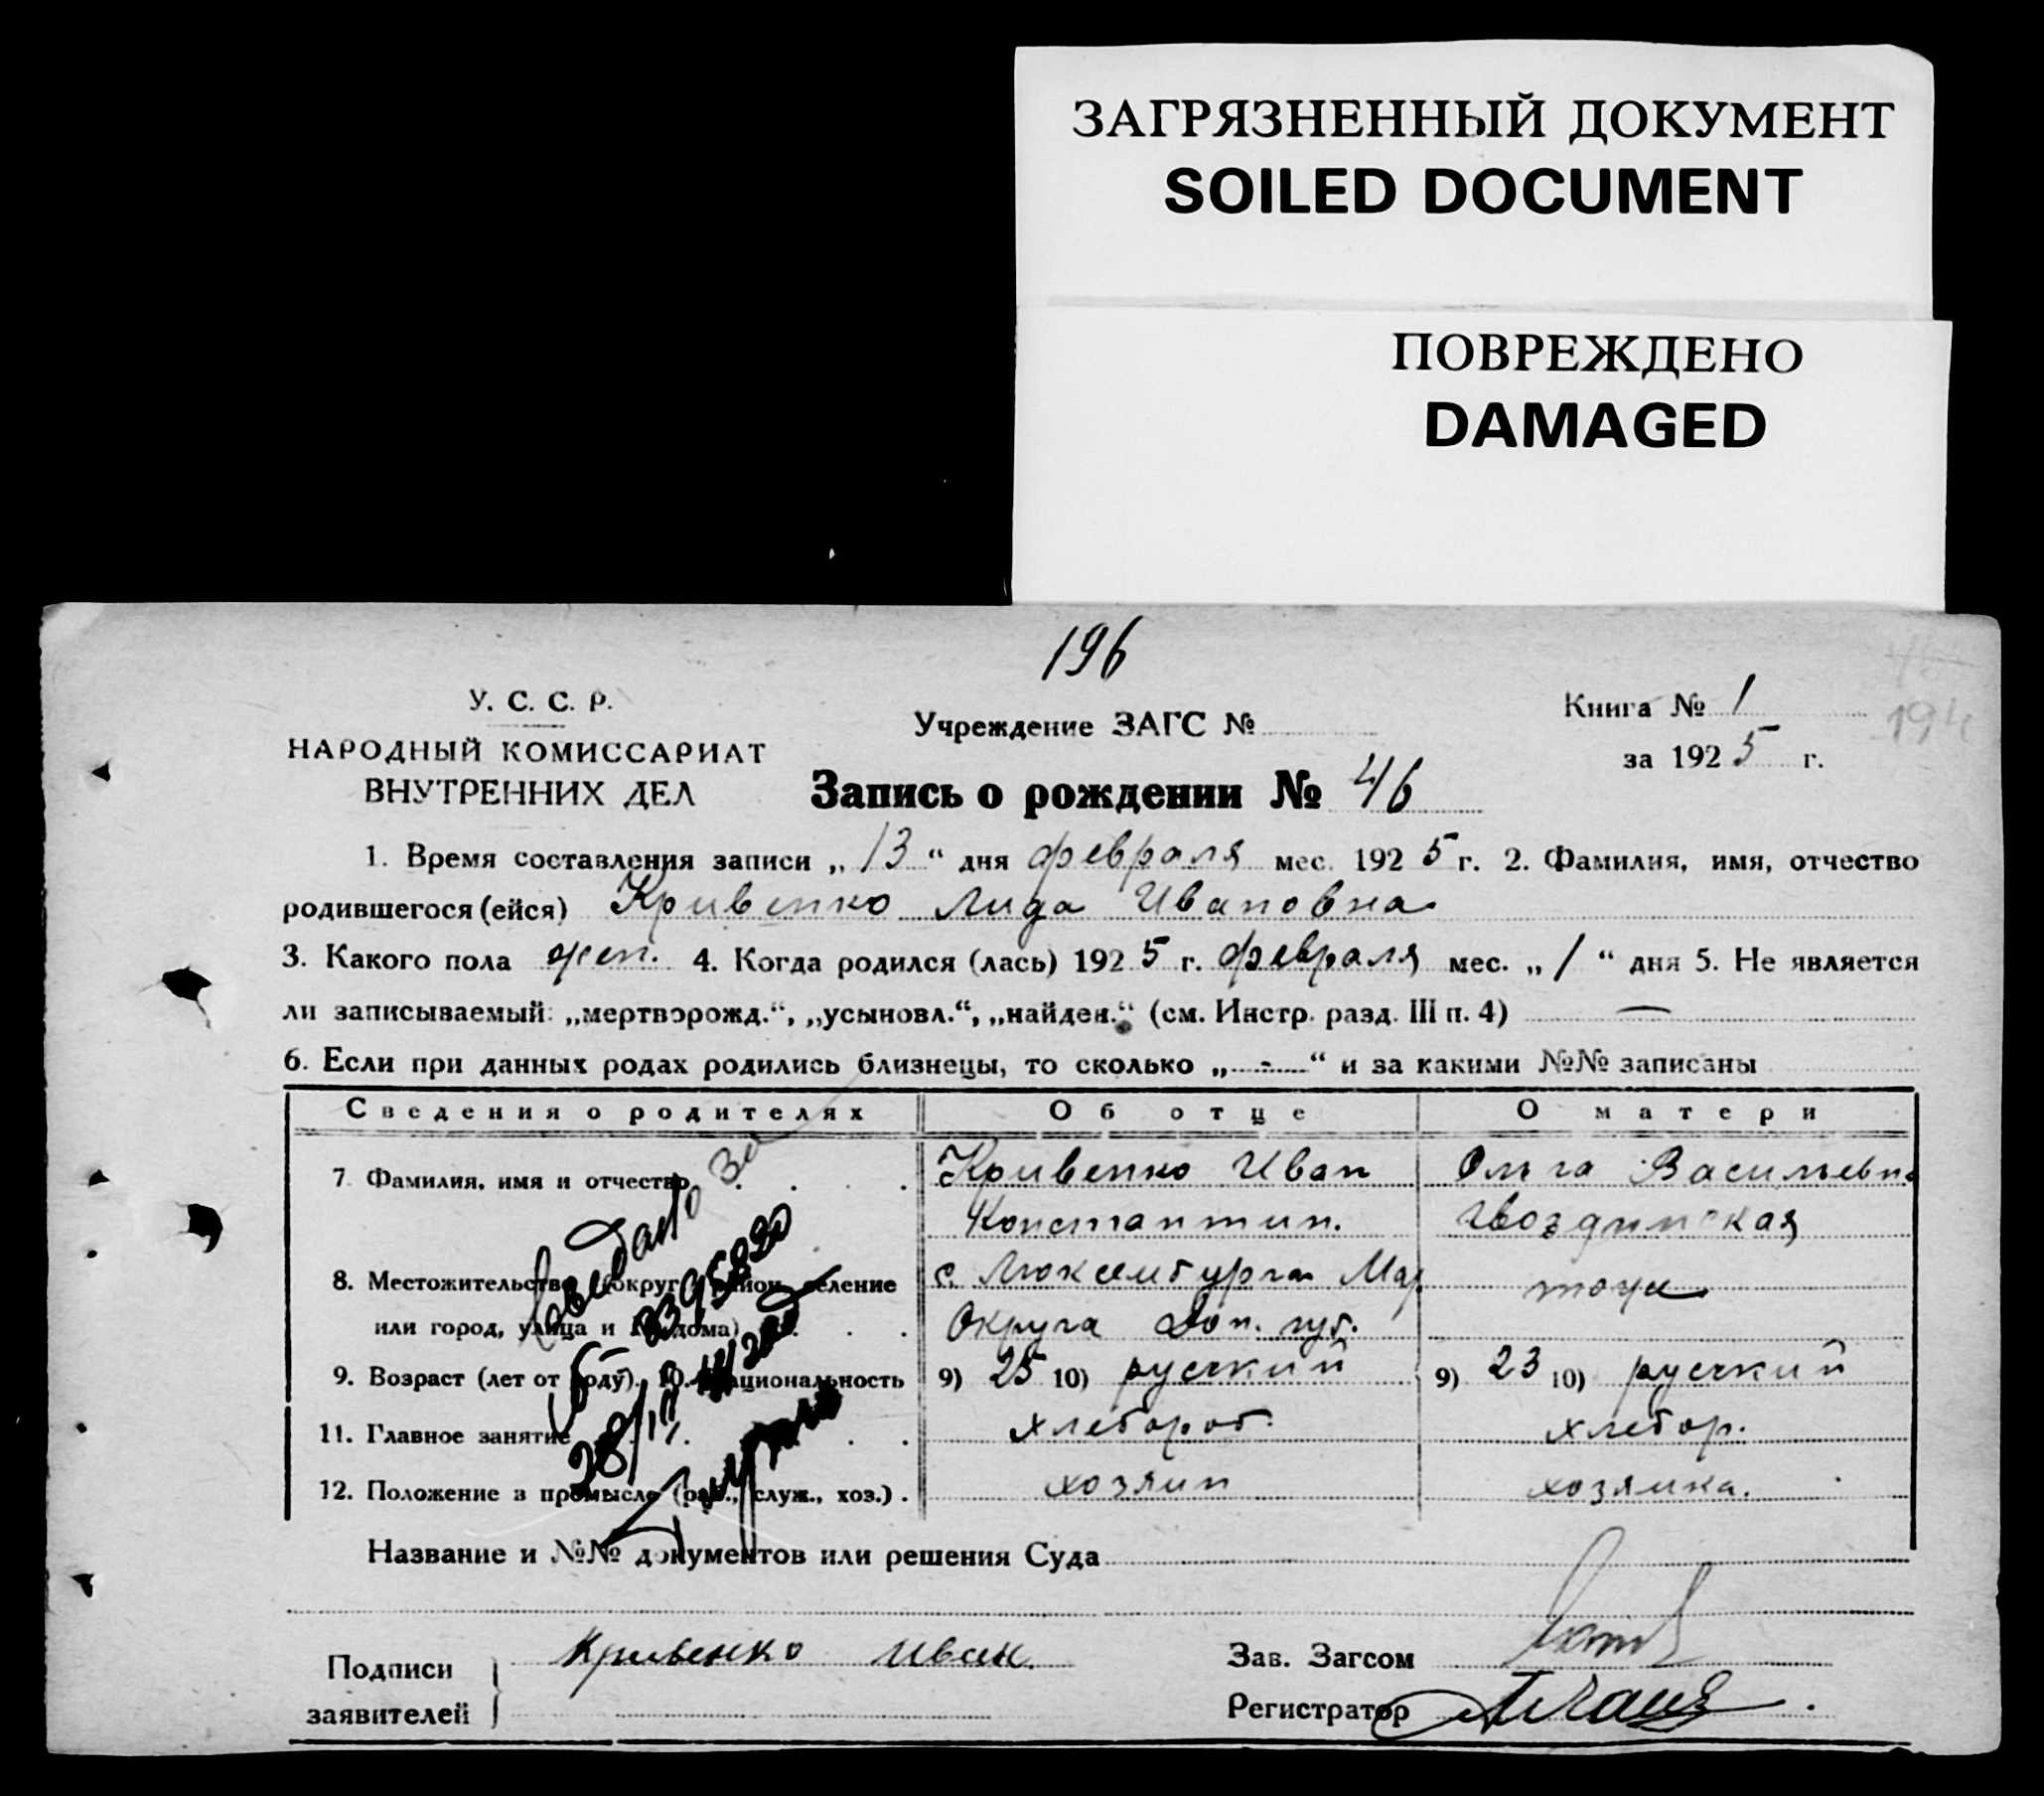 ЗАГРЯЗНЕННЫЙ ДОКУМЕНТ
SOILED DOCUMENT
ПОВРЕЖДЕНО
DAMAGED
196
У. С. С. Р.
НАРОДНЫЙ КОМИССАРИАТ
ВНУТРЕННИХ ДЕЛ
Учреждение ЗАГС №
Книга № 1
за 1925 г.
Запись о рождении № 46
1. Время составления записи „13“ дня февраля мес. 1925 г. 2. Фамилия, имя, отчество
родившегося (ейся) Кривенко Лида Ивановна
3. Какого пола жен. 4. Когда родился (лась) 1925 г. февраля мес. „1“ дня 5. Не является
ли записываемый: „мертворожд.“, „усыновл.“, „найден.“ (см. Инстр. разд. III п. 4) —
6. Если при данных родах родились близнецы, то сколько „-“ и за какими №№ записаны
Сведения о родителях Об отце О матери
7. Фамилия, имя и отчество Кривенко Иван Ольга Васильевна
Константин. Гвоздинская
8. Местожительство (округ, район, селение с. Люксембурга Мар. тоже
или город, улица и № дома) Округа Дон. губ.
9. Возраст (лет от роду). 10. Национальность 9) 25 10) руский 9) 23 10) руский
11. Главное занятие хлебороб. хлебор.
12. Положение в промысле (раб., служ., хоз.) хозяин хозяйка.
Выдано
28/III
Название и №№ документов или решения Суда
Подписи заявителей } Кривенко Иван.
Зав. Загсом
Регистратор